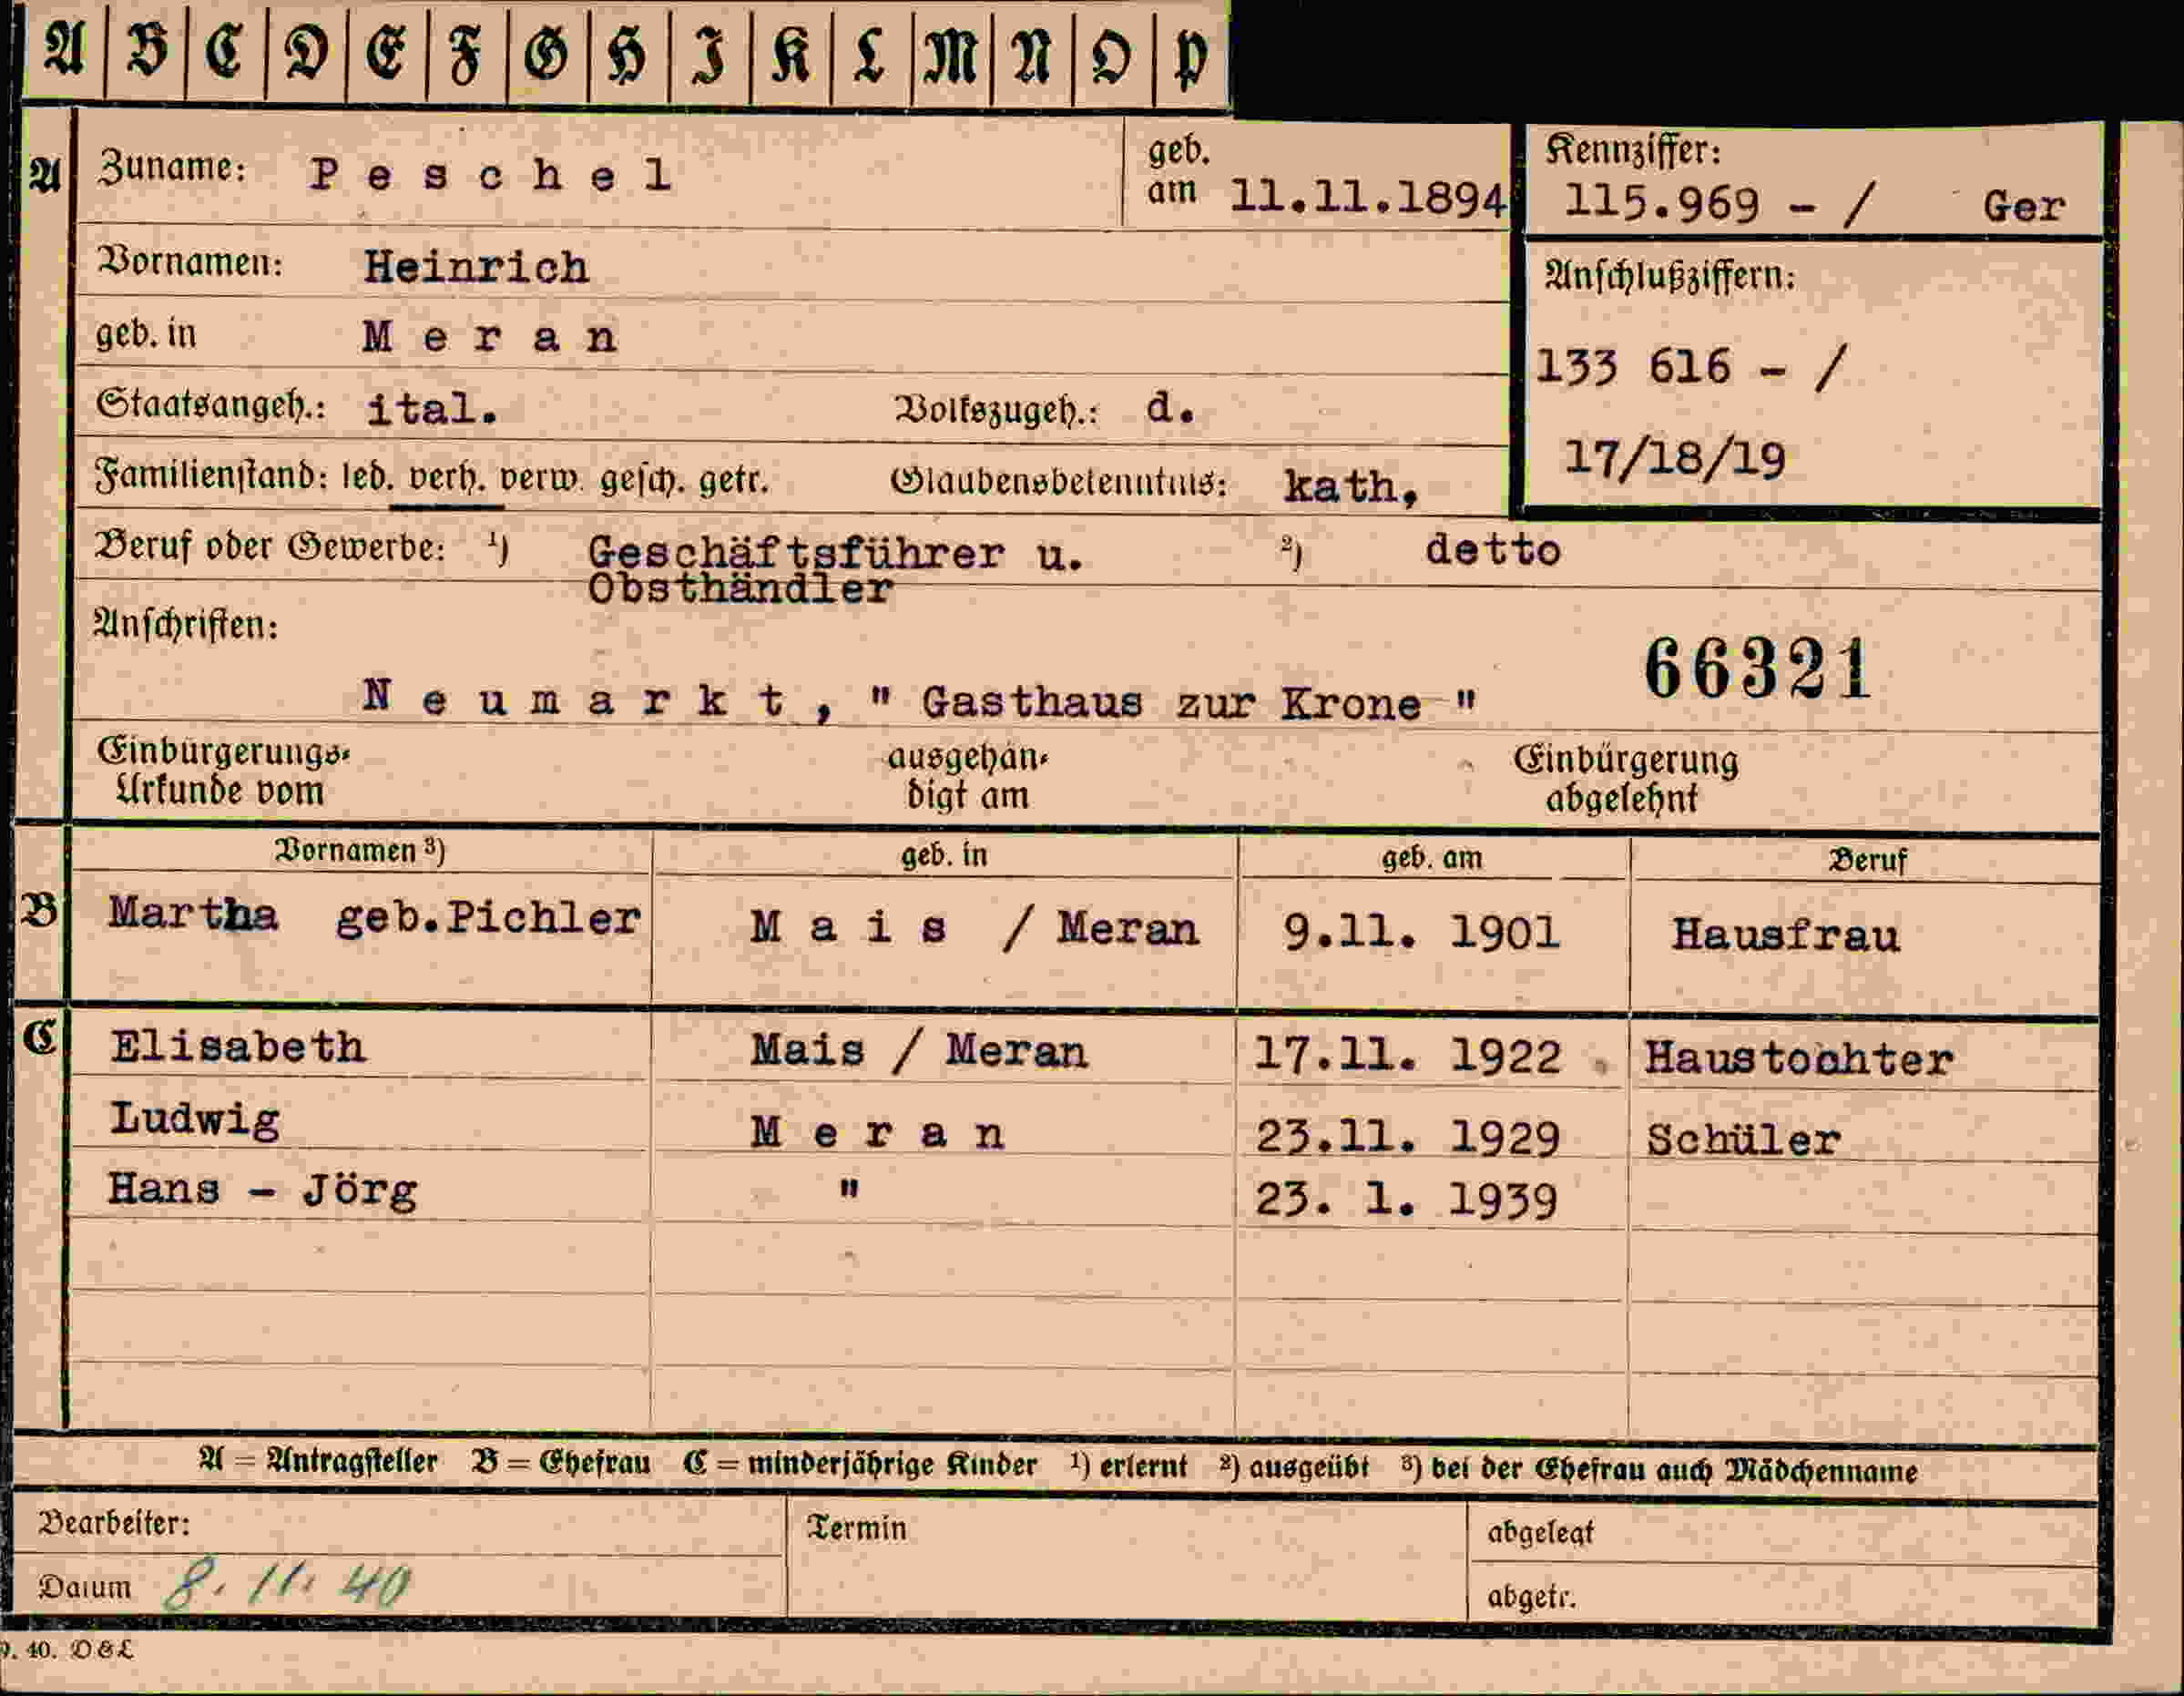 A B C D E F G H I K L M N O P
A Zuname: Peschel geb. am 11.11.1894
Kennziffer: 115.969 - / Ger
Vornamen: Heinrich
Anschlußziffern:
geb. in Meran
133 616 - /
Staatsangeh.: ital. Volkszugeh.: d.
17/18/19
Familienstand: led. verh. verw. gesch. getr. Glaubensbekenntnis: kath,
Beruf oder Gewerbe: 1) Geschäftsführer u. 2) detto
Obsthändler
Anschriften:
66321
Neumarkt, " Gasthaus zur Krone "
Einbürgerungs- ausgehän- Einbürgerung
Urkunde vom digt am abgelehnt
Vornamen 3) geb. in geb. am Beruf
B Martha geb.Pichler Mais / Meran 9.11. 1901 Hausfrau
C Elisabeth Mais / Meran 17.11. 1922 Haustochter
Ludwig Meran 23.11. 1929 Schüler
Hans - Jörg " 23. 1. 1939
A = Antragsteller B = Ehefrau C = minderjährige Kinder 1) erlernt 2) ausgeübt 3) bei der Ehefrau auch Mädchenname
Bearbeiter: Termin abgelegt
Datum 8. 11. 40 abgetr.
9. 40. D&L